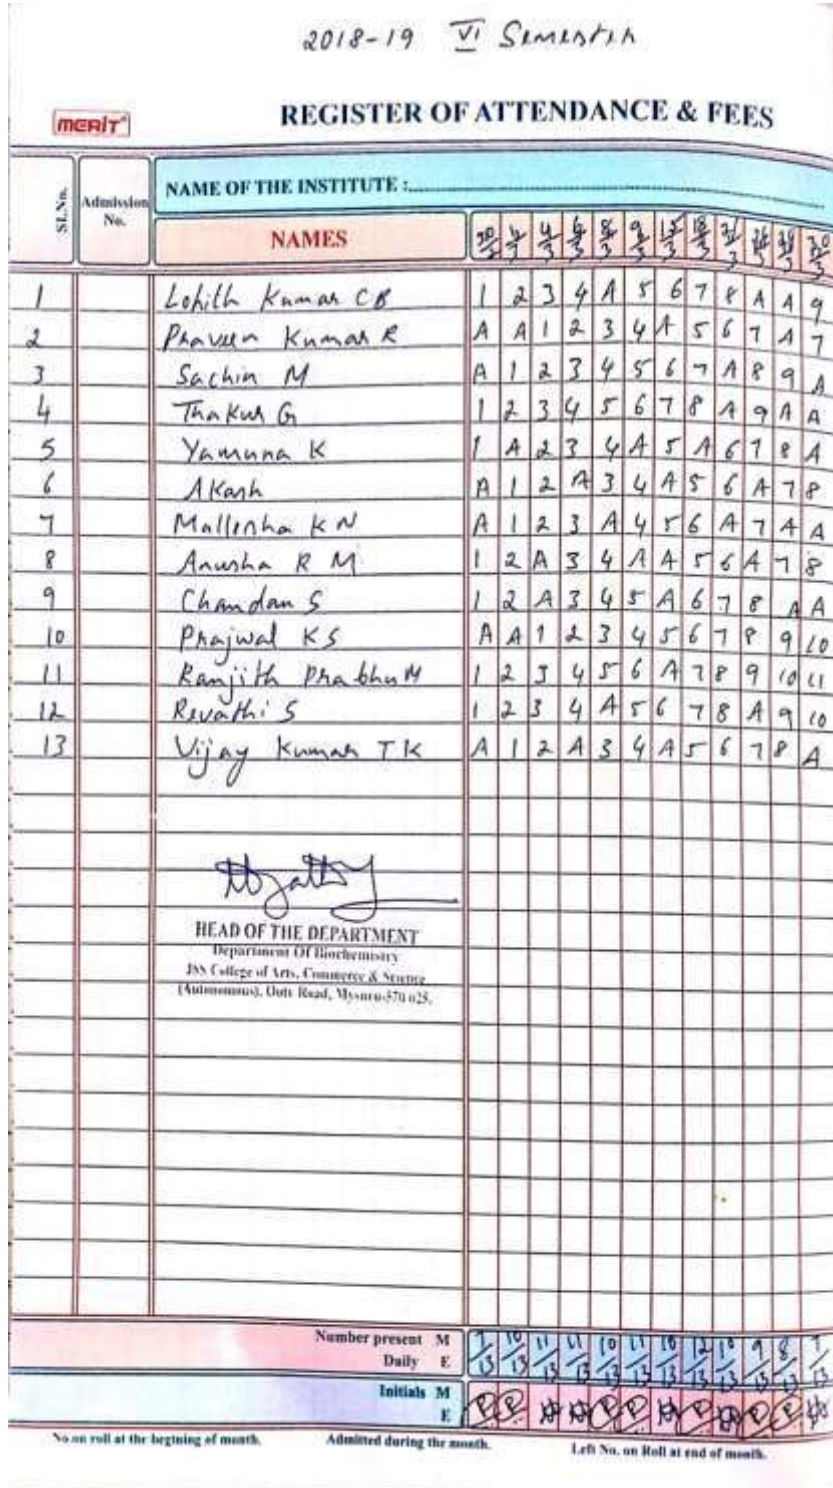 2018-19 VI Semester
MERIT
REGISTER OF ATTENDANCE & FEES
Sl.No. Admission No. NAME OF THE INSTITUTE :
NAMES 4/3 6/3 8/3 9/3 15/3 18/3
1 Lohith Kumar C B 1 2 3 4 A 5 6 7 8 A A 9
2 Praveen Kumar R A A 1 2 3 4 A 5 6 7 A 7
3 Sachin M A 1 2 3 4 5 6 7 A 8 9 A
4 Thakur G 1 2 3 4 5 6 7 8 A 9 A A
5 Yamuna K 1 A 2 3 4 A 5 A 6 7 8 A
6 Akash A 1 2 A 3 4 A 5 6 A 7 8
7 Mallesha K N A 1 2 3 A 4 5 6 A 7 A A
8 Anusha R M 1 2 A 3 4 A A 5 6 A 7 8
9 Chandan S 1 2 A 3 4 5 A 6 7 8 A A
10 Prajwal K S A A 1 2 3 4 5 6 7 8 9 10
11 Ranjith Prabhu M 1 2 3 4 5 6 A 7 8 9 10 11
12 Revathi S 1 2 3 4 A 5 6 7 8 A 9 10
13 Vijay Kumar T K A 1 2 A 3 4 A 5 6 7 8 A
HEAD OF THE DEPARTMENT
Department Of Biochemistry
JSS College of Arts, Commerce & Science
(Autonomous), Ooty Road, Mysuru-570 025.
Number present M 7/13 10/13 11/13 11/13 10/13 11/13 10/13 12/13 10/13 9/13 8/13 7/13
Daily E
Initials M
E
No.on roll at the begining of month. Admitted during the month. Left No. on Roll at end of month.